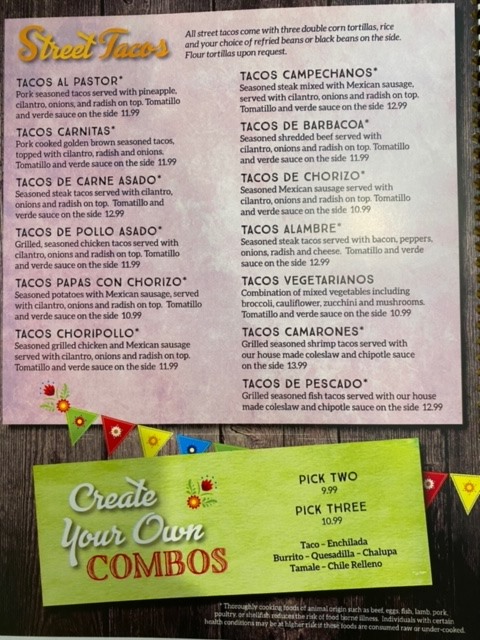 Street Tacos
All street tacos come with three double corn tortillas, rice
and your choice of refried beans or black beans on the side.
Flour tortillas upon request.
TACOS AL PASTOR*
Pork seasoned tacos served with pineapple,
cilantro, onions, and radish on top. Tomatillo
and verde sauce on the side 11.99
TACOS CARNITAS*
Pork cooked golden brown seasoned tacos,
topped with cilantro, radish and onions.
Tomatillo and verde sauce on the side 11.99
TACOS DE CARNE ASADO*
Seasoned steak tacos served with cilantro,
onions and radish on top. Tomatillo and
verde sauce on the side 12.99
TACOS DE POLLO ASADO*
Grilled, seasoned chicken tacos served with
cilantro, onions and radish on top. Tomatillo
and verde sauce on the side 11.99
TACOS PAPAS CON CHORIZO*
Seasoned potatoes with Mexican sausage, served
with cilantro, onions and radish on top. Tomatillo
and verde sauce on the side 10.99
TACOS CHORIPOLLO*
Seasoned grilled chicken and Mexican sausage
served with cilantro, onions and radish on top.
Tomatillo and verde sauce on the side 11.99
TACOS CAMPECHANOS*
Seasoned steak mixed with Mexican sausage,
served with cilantro, onions and radish on top.
Tomatillo and verde sauce on the side 12.99
TACOS DE BARBACOA*
Seasoned shredded beef served with
cilantro, onions and radish on top. Tomatillo
and verde sauce on the side 11.99
TACOS DE CHORIZO*
Seasoned Mexican sausage served with
cilantro, onions and radish on top. Tomatillo
and verde sauce on the side 10.99
TACOS ALAMBRE*
Seasoned steak tacos served with bacon, peppers,
onions, radish and cheese. Tomatillo and verde
sauce on the side 12.99
TACOS VEGETARIANOS
Combination of mixed vegetables including
broccoli, cauliflower, zucchini and mushrooms.
Tomatillo and verde sauce on the side 10.99
TACOS CAMARONES*
Grilled seasoned shrimp tacos served with
our house made coleslaw and chipotle sauce
on the side 13.99
TACOS DE PESCADO*
Grilled seasoned fish tacos served with our house
made coleslaw and chipotle sauce on the side 12.99
Create
Your Own
COMBOS
PICK TWO
9.99
PICK THREE
10.99
Taco – Enchilada
Burrito – Quesadilla – Chalupa
Tamale – Chile Relleno
* Thoroughly cooking foods of animal origin such as beef, eggs, fish, lamb, pork,
poultry, or shellfish reduces the risk of food borne illness. Individuals with certain
health conditions may be at higher risk if these foods are consumed raw or under-cooked.